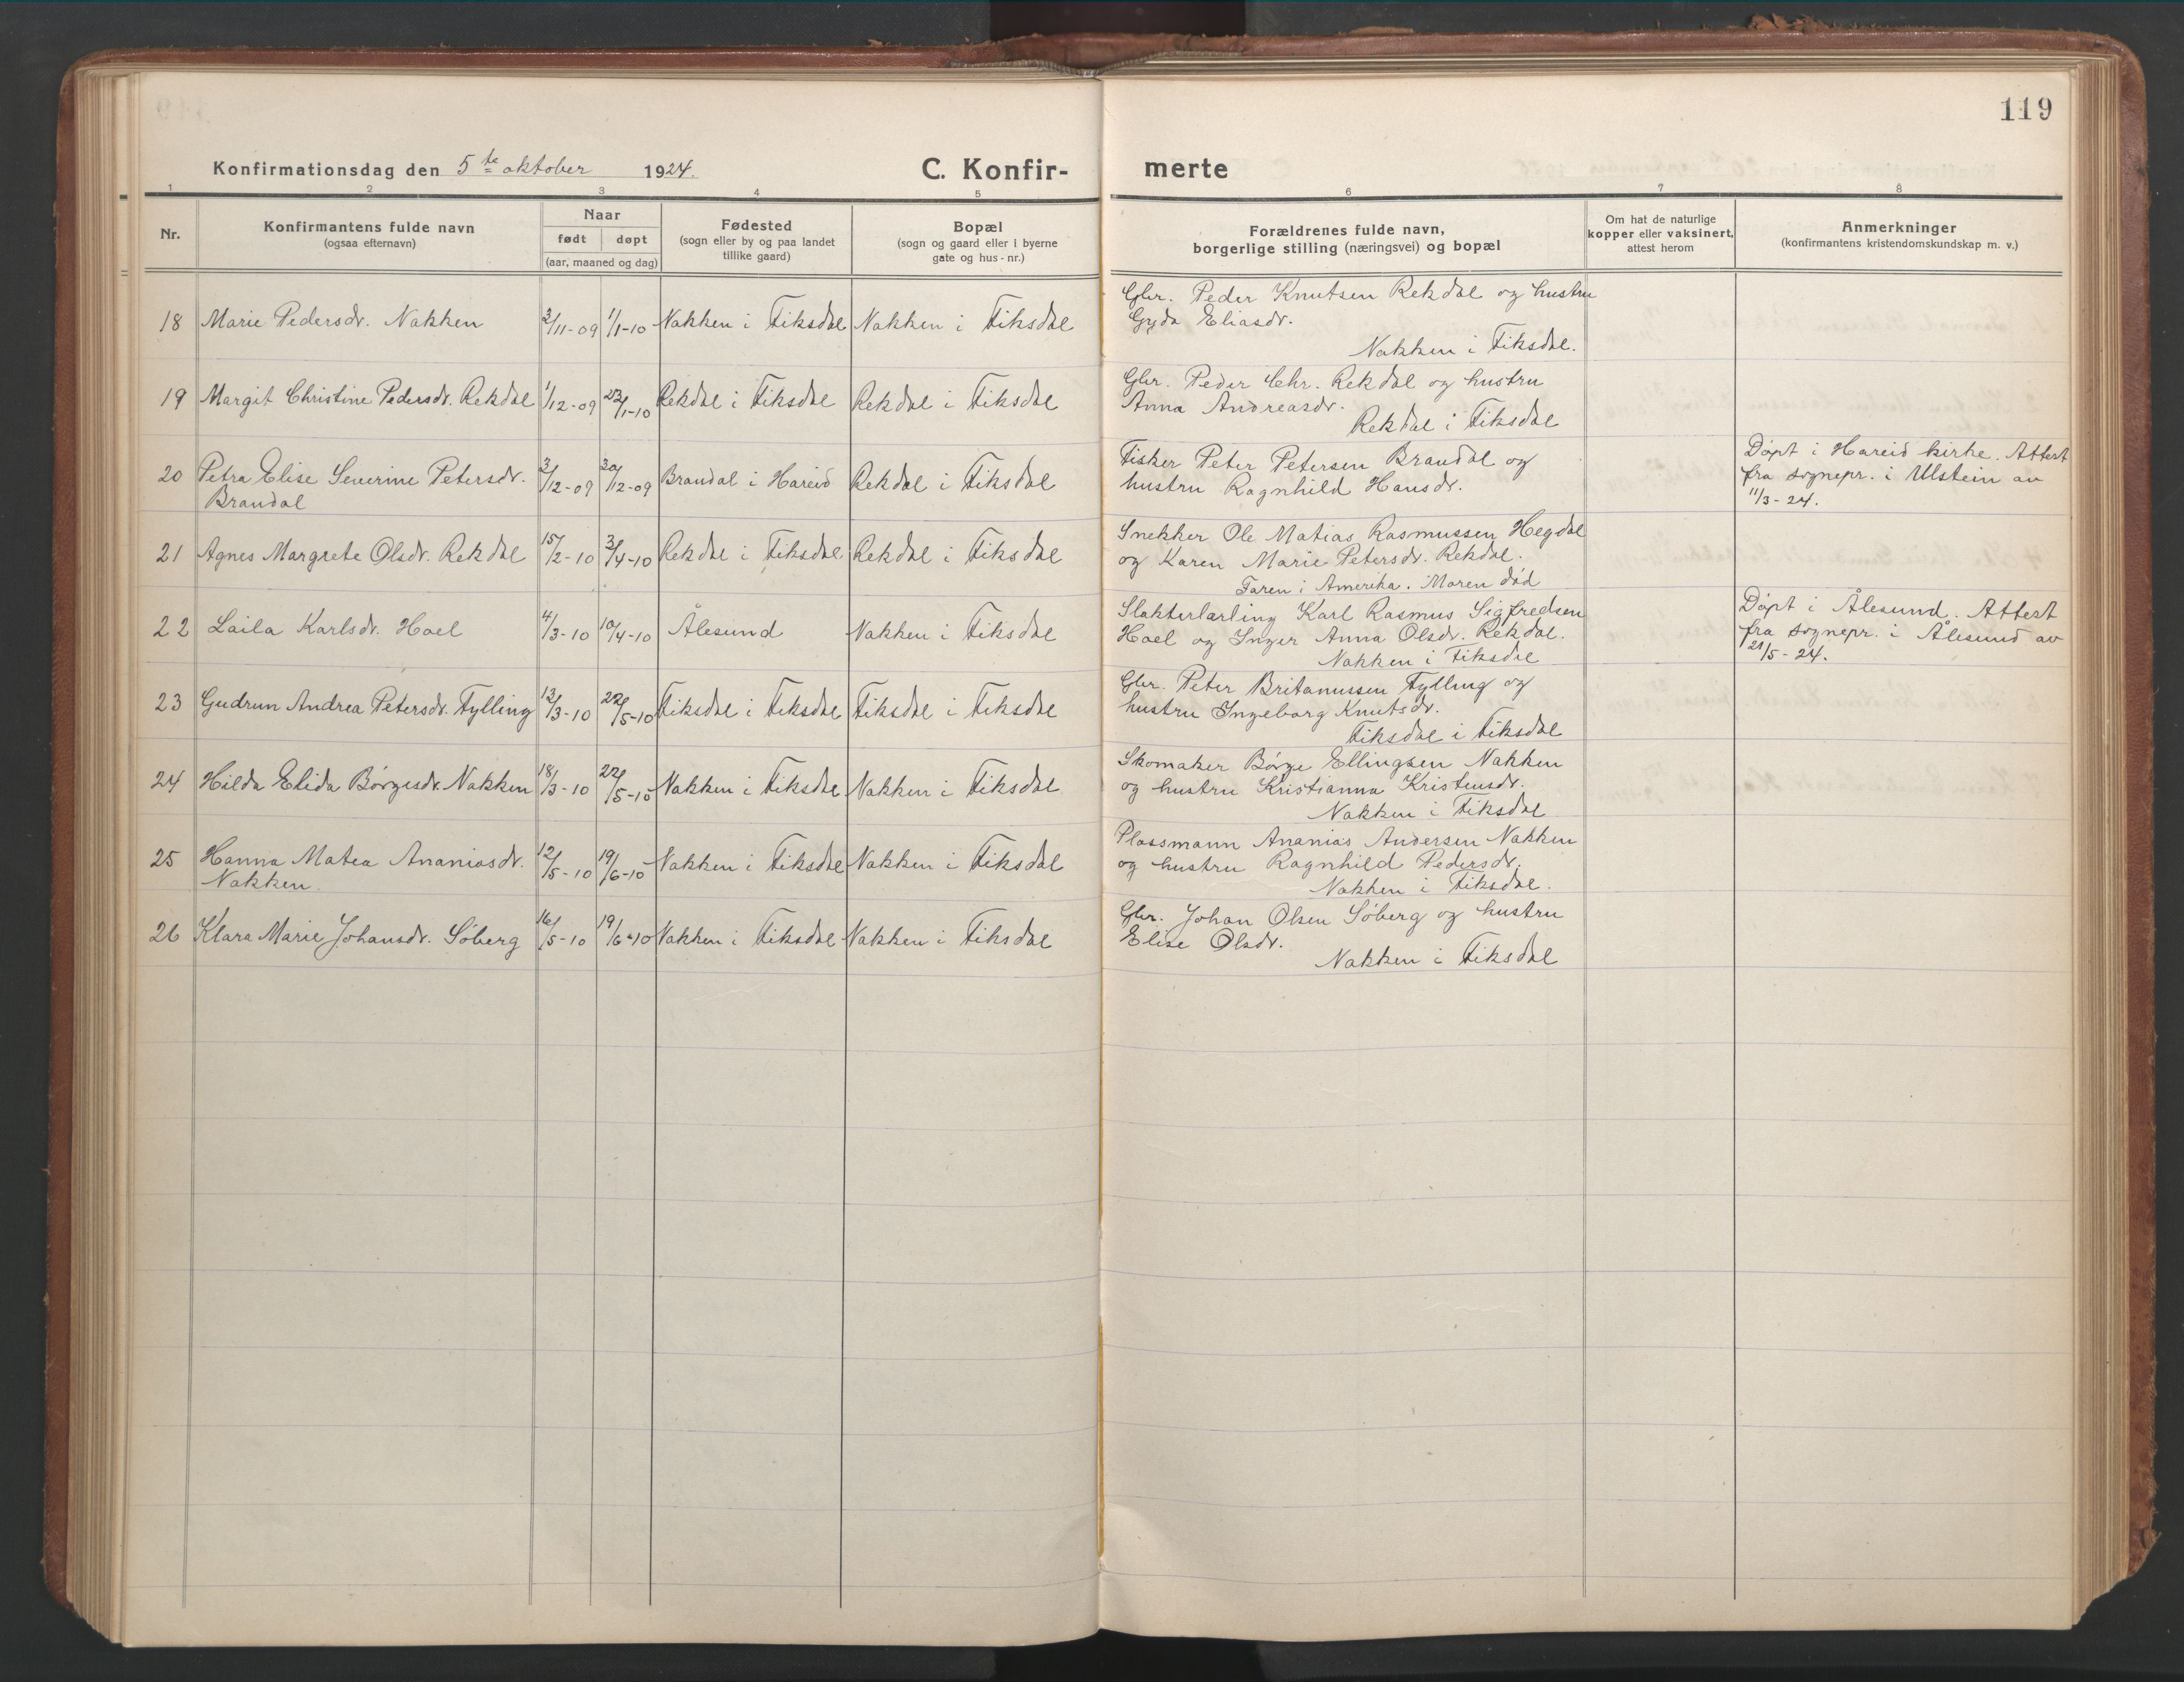 119
Konfirmationsdag den 5te oktober 1924. C. Konfir- merte
1 2 3 4 5 6 7 8
Nr.
Konfirmantens fulde navn
(ogsaa efternavn)
Naar
født døpt
(aar, maaned og dag)
Fødested
(sogn eller by og paa landet
tillike gaard)
Bopæl
(sogn og gaard eller i byerne
gate og hus-nr.)
Forældrenes fulde navn,
borgerlige stilling (næringsvei) og bopæl
Om hat de naturlige
kopper eller vaksinert,
attest herom
Anmerkninger
(konfirmantens kristendomskundskap m. v.)
18 Marie Pedersdr. Nakken 2/11-09 1/1-10 Nakken i Fiksdal Nakken i Fiksdal
Gbr. Peder Knutsen Rekdal og hustru
Gyda Eliasdr.
Nakken i Fiksdal.
19 Margit Christine Pedersdr. Rekdal 1/12-09 23/1-10 Rekdal i Fiksdal Rekdal i Fiksdal
Gbr. Peder Chr. Rekdal og hustru
Anna Andreasdr.
Rekdal i Fiksdal
20 Petra Elise Severine Petersdr.
Brandal
3/12-09 30/12-09 Brandal i Hareid Rekdal i Fiksdal
Fisker Peter Petersen Brandal og
hustru Ragnhild Hansdr.
Döpt i Hareid kirke. Attest
fra sognepr. i Ulstein av
11/3-24.
21 Agnes Margrete Olsdr. Rekdal 15/2-10 3/4-10 Rekdal i Fiksdal Rekdal i Fiksdal
Snekker Ole Matias Rasmussen Hegdal
og Karen Marie Petersdr. Rekdal.
Faren i Amerika. Moren död
22 Laila Karlsdr. Hoel 4/3-10 10/4-10 Ålesund Nakken i Fiksdal
Slakterlærling Karl Rasmus Sigfredsen
Hoel og Inger Anna Olsdr. Rekdal.
Nakken i Fiksdal
Döpt i Ålesund. Attest
fra sognepr. i Ålesund av
21/5-24.
23 Gudrun Andrea Petersdr. Fylling 12/3-10 22/5-10 Fiksdal i Fiksdal Fiksdal i Fiksdal
Gbr. Peter Britanussen Fylling og
hustru Ingeborg Knutsdr.
Fiksdal i Fiksdal
24 Hilda Elida Börgesdr. Nakken 18/3-10 22/5-10 Nakken i Fiksdal Nakken i Fiksdal
Skomaker Börge Ellingsen Nakken
og hustru Kristianna Kristensdr.
Nakken i Fiksdal
25 Hanna Matea Ananiasdr.
Nakken.
12/5-10 19/6-10 Nakken i Fiksdal Nakken i Fiksdal
Plassmann Ananias Andersen Nakken
og hustru Ragnhild Pedersdr.
Nakken i Fiksdal.
26 Klara Marie Johansdr. Söberg 16/5-10 19/6-10 Nakken i Fiksdal Nakken i Fiksdal
Gbr. Johan Olsen Söberg og hustru
Elise Olsdr.
Nakken i Fiksdal